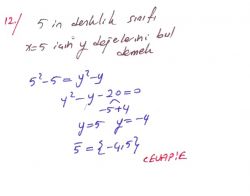 12-/ 5 in denklik sınıfı
x=5 için y değelerini bul
demek
5²-5=y²-y
y²-y-20=0
-5+4
y=5 y=-4
5̅={-4,5}
CEVAP:E